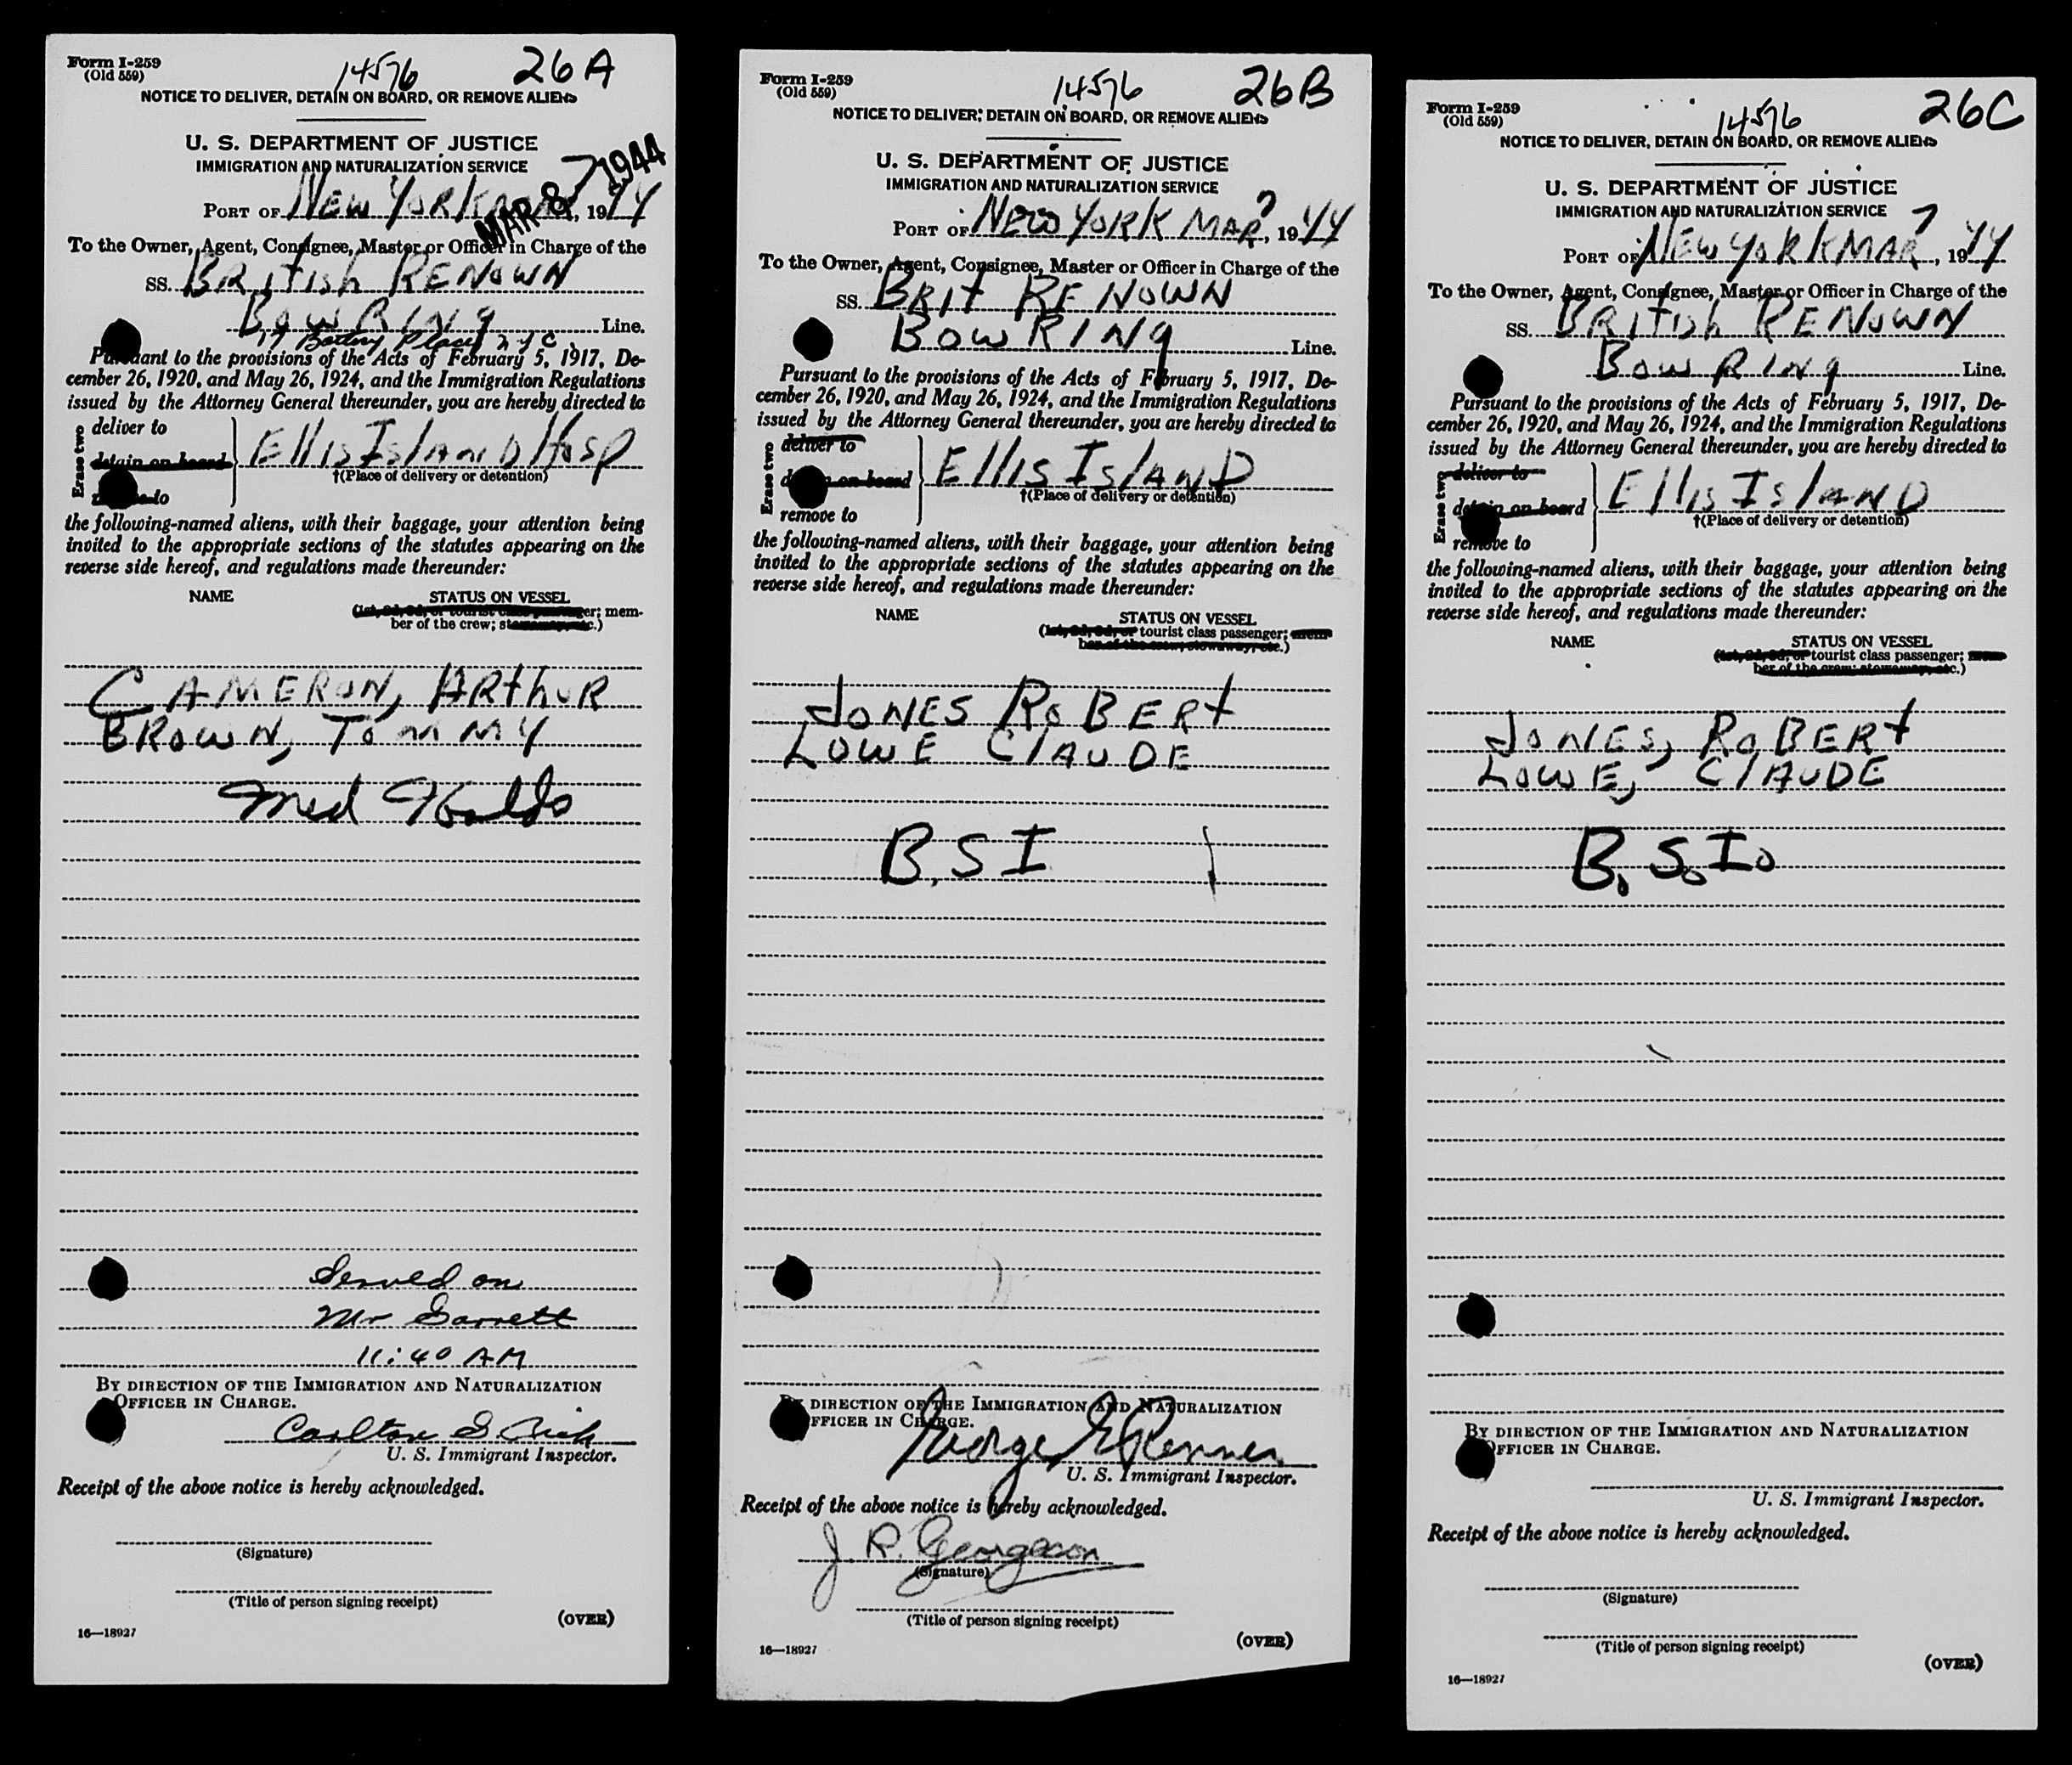 Form I-259
(Old 559)
14576
26A
NOTICE TO DELIVER, DETAIN ON BOARD, OR REMOVE ALIENS
U. S. DEPARTMENT OF JUSTICE
IMMIGRATION AND NATURALIZATION SERVICE
MAR 8 1944
PORT OF NEW YORK MAR 7, 1944
To the Owner, Agent, Consignee, Master or Officer in Charge of the
SS. BRITISH RENOWN
BOWRING Line.
17 Battery Place N Y C
Pursuant to the provisions of the Acts of February 5, 1917, De-
cember 26, 1920, and May 26, 1924, and the Immigration Regulations
issued by the Attorney General thereunder, you are hereby directed to
Erase two
deliver to
detain on board
ELLIS ISLAND HOSP
†(Place of delivery or detention)
the following-named aliens, with their baggage, your attention being
invited to the appropriate sections of the statutes appearing on the
reverse side hereof, and regulations made thereunder:
NAME STATUS ON VESSEL
(1st, 2d, 3d, or tourist class passenger; mem-
ber of the crew; stowaway, etc.)
CAMERON, ARTHUR
BROWN, TOMMY
Med Holds
Served on
Mr Garrett
11:40 AM
BY DIRECTION OF THE IMMIGRATION AND NATURALIZATION
OFFICER IN CHARGE.
Carlton
U. S. Immigrant Inspector.
Receipt of the above notice is hereby acknowledged.
(Signature)
(Title of person signing receipt)
(OVER)
16—18927
Form I-259
(Old 559)
14576
26B
NOTICE TO DELIVER, DETAIN ON BOARD, OR REMOVE ALIENS
U. S. DEPARTMENT OF JUSTICE
IMMIGRATION AND NATURALIZATION SERVICE
PORT OF NEW YORK MAR 7, 1944
To the Owner, Agent, Consignee, Master or Officer in Charge of the
SS. BRIT RENOWN
BOWRING Line.
Pursuant to the provisions of the Acts of February 5, 1917, De-
cember 26, 1920, and May 26, 1924, and the Immigration Regulations
issued by the Attorney General thereunder, you are hereby directed to
Erase two
deliver to
detain on board
remove to
ELLIS ISLAND
†(Place of delivery or detention)
the following-named aliens, with their baggage, your attention being
invited to the appropriate sections of the statutes appearing on the
reverse side hereof, and regulations made thereunder:
NAME STATUS ON VESSEL
(1st, 2d, 3d, or tourist class passenger; mem-
ber of the crew; stowaway, etc.)
JONES ROBERT
LOWE CLAUDE
B.S I
BY DIRECTION OF THE IMMIGRATION AND NATURALIZATION
OFFICER IN CHARGE.
George Renner
U. S. Immigrant Inspector.
Receipt of the above notice is hereby acknowledged.
J. R. Georgeson
(Signature)
(Title of person signing receipt)
(OVER)
16—18927
Form I-259
(Old 559)
14576
26C
NOTICE TO DELIVER, DETAIN ON BOARD, OR REMOVE ALIENS
U. S. DEPARTMENT OF JUSTICE
IMMIGRATION AND NATURALIZATION SERVICE
PORT OF NEW YORK MAR 7, 1944
To the Owner, Agent, Consignee, Master or Officer in Charge of the
SS. BRITISH RENOWN
BOWRING Line.
Pursuant to the provisions of the Acts of February 5, 1917, De-
cember 26, 1920, and May 26, 1924, and the Immigration Regulations
issued by the Attorney General thereunder, you are hereby directed to
Erase two
deliver to
detain on board
remove to
ELLIS ISLAND
†(Place of delivery or detention)
the following-named aliens, with their baggage, your attention being
invited to the appropriate sections of the statutes appearing on the
reverse side hereof, and regulations made thereunder:
NAME STATUS ON VESSEL
(1st, 2d, 3d, or tourist class passenger; mem-
ber of the crew; stowaway, etc.)
JONES, ROBERT
LOWE, CLAUDE
B.S.I.
BY DIRECTION OF THE IMMIGRATION AND NATURALIZATION
OFFICER IN CHARGE.
U. S. Immigrant Inspector.
Receipt of the above notice is hereby acknowledged.
(Signature)
(Title of person signing receipt)
(OVER)
16—18927